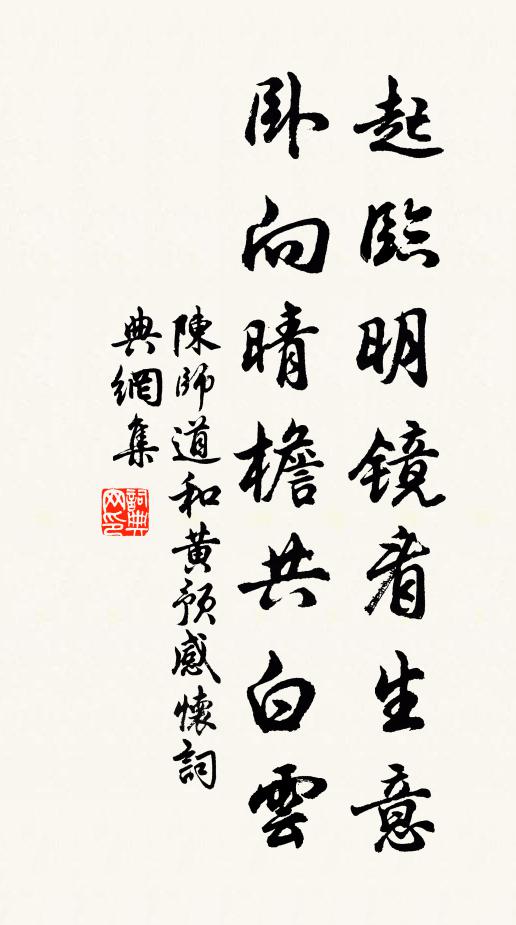 起臨明镜看生意
卧向晴檐共白雲
陳師道和黄預感懷詞
典網集
詞典
网印